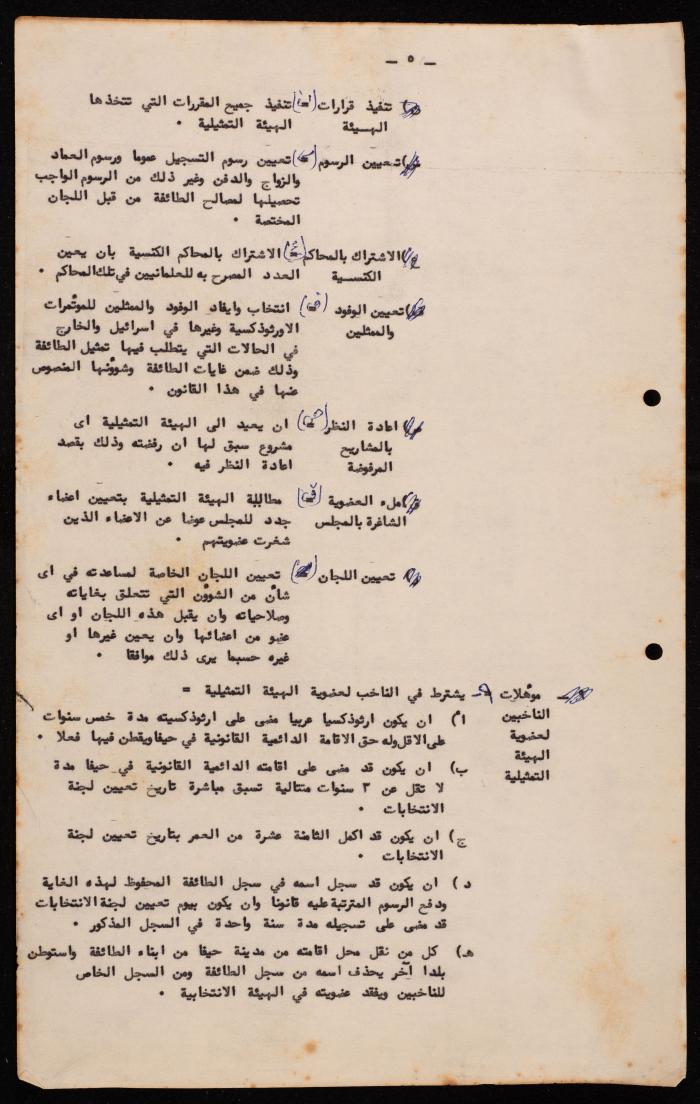 - ٥ -
تنفيذ قرارات تنفيذ جميع المقررات التي تتخذها
الهيئة الهيئة التمثيلية ٠
تعيين الرسوم تعيين رسوم التسجيل عموما ورسوم العماد
والزواج والدفن وغير ذلك من الرسوم الواجب
تحصيلها لمصالح الطائفة من قبل اللجان
المختصة ٠
الاشتراك بالمحاكم الاشتراك بالمحاكم الكنسية بان يعين
الكنسية العدد المصرح به للعلمانيين في تلك المحاكم ٠
تعيين الوفود انتخاب وايفاد الوفود والممثلين للموتمرات
والممثلين الاورثوذكسية وغيرها في اسرائيل والخارج
في الحالات التي يتطلب فيها تمثيل الطائفة
وذلك ضمن غايات الطائفة وشوونها المنصوص
عنها في هذا القانون ٠
اعادة النظر ان يعيد الى الهيئة التمثيلية اى
بالمشاريح مشروع سبق لها ان رفضته وذلك بقصد
المرفوضة اعادة النظر فيه ٠
املاء العضوية (ق) مطالبة الهيئة التمثيلية بتعيين اعضاء
الشاغرة بالمجلس جدد للمجلس عوضا عن الاعضاء الذين
شغرت عضويتهم ٠
تعيين اللجان تعيين اللجان الخاصة لمساعدته في اى
شأن من الشوون التي تتعلق بغاياته
وصلاحياته وان يقبل هذه اللجان او اى
عضو من اعضائها وان يعين غيرها او
غيره حسبما يرى ذلك موافقا ٠
موهلات يشترط في الناخب لعضوية الهيئة التمثيلية =
الناخبين ا) ان يكون ارثوذكسيا عربيا مضى على ارثوذكسيته مدة خمس سنوات
لعضوية على الاقل وله حق الاقامة الدائمية القانونية في حيفا ويقطن فيها فعلا ٠
الهيئة ب) ان يكون قد مضى على اقامته الدائمية القانونية في حيفا مدة
التمثيلية لا تقل عن ٣ سنوات متتالية تسبق مباشرة تاريخ تعيين لجنة
الانتخابات ٠
ج) ان يكون قد اكمل الثامنة عشرة من العمر بتاريخ تعيين لجنة
الانتخابات ٠
د) ان يكون قد سجل اسمه في سجل الطائفة المحفوظ لهذه الغاية
ودفع الرسوم المترتبة عليه قانونا وان يكون بيوم تعيين لجنة الانتخابات
قد مضى على تسجيله مدة سنة واحدة في السجل المذكور ٠
هـ) كل من نقل محل اقامته من مدينة حيفا من ابناء الطائفة واستوطن
بلدا آخر يحذف اسمه من سجل الطائفة ومن السجل الخاص
للناخبين ويفقد عضويته في الهيئة الانتخابية ٠